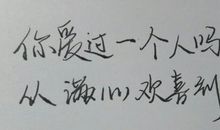 你爱过一个人吗
从满心欢喜到